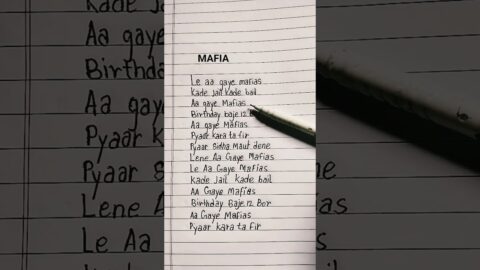 MAFIA
Le aa gaye mafias
Kade Jail Kade bail
Aa gaye Mafias
Birthday baje 12 B
Aa gaye Mafias
Pyaar kara ta fir
Pyaar Sidha Maut dene
Lene Aa Gaye Mafias
Le Aa Gaye Mafias
Kade Jail Kade bail
AA Gaye Mafias
Birthday Baje 12 Bor
Aa Gaye Mafias
Pyaar kara ta fir